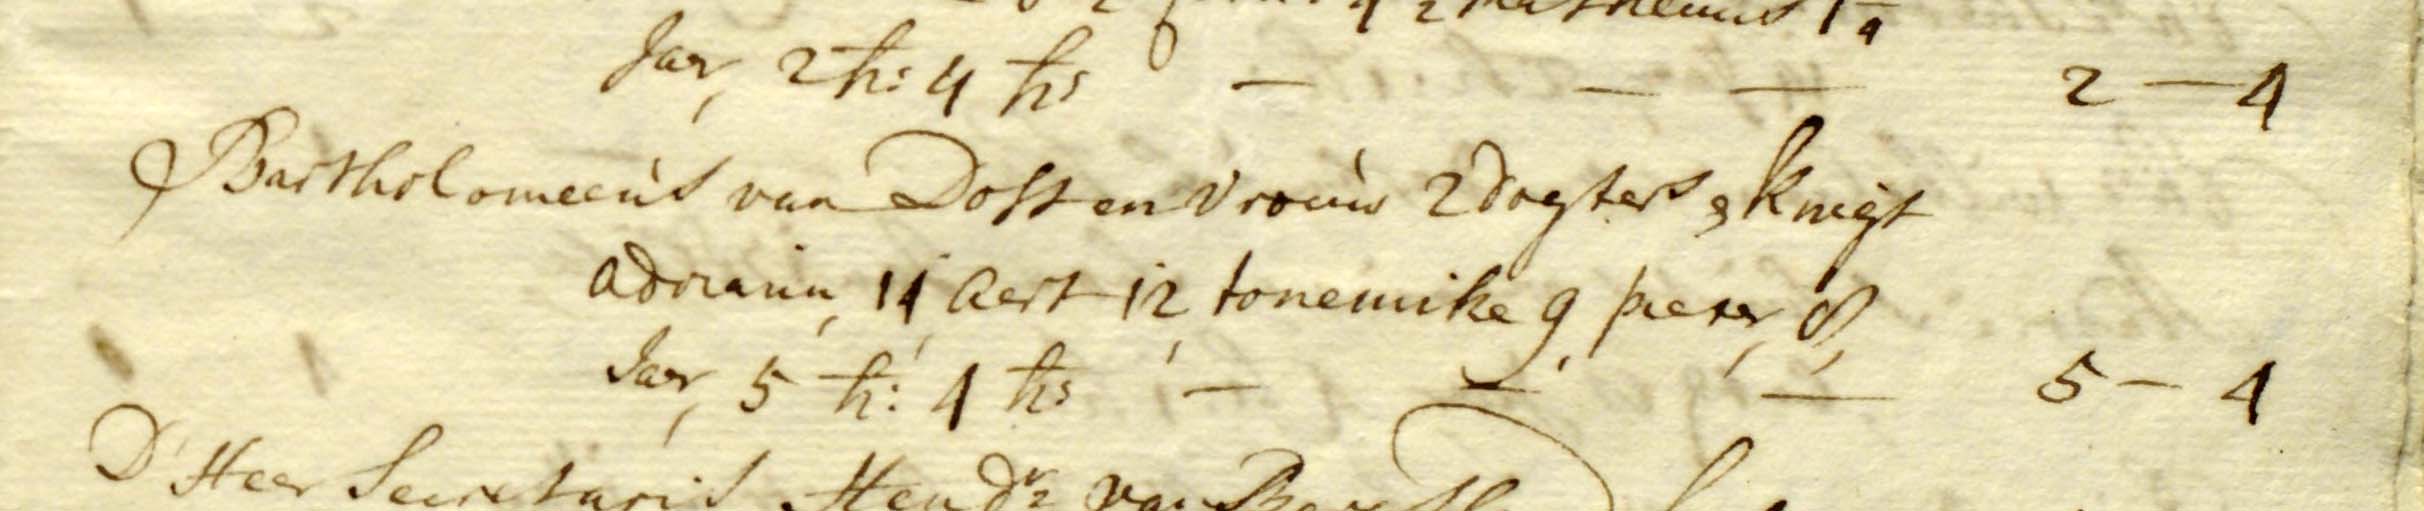 Matheeuis 1 1/4
Jar, 2 h: 4 hs — — — 2 — 4
Bartholomeeus van Dosst en vrouw 2 dogters & knegt
adriaan, 14 aert 12, tonemike 9 pieter, 8,
Jar, 5 h: 4 hs — — — 5 — 4
D'Heer Secretaris Hendr van